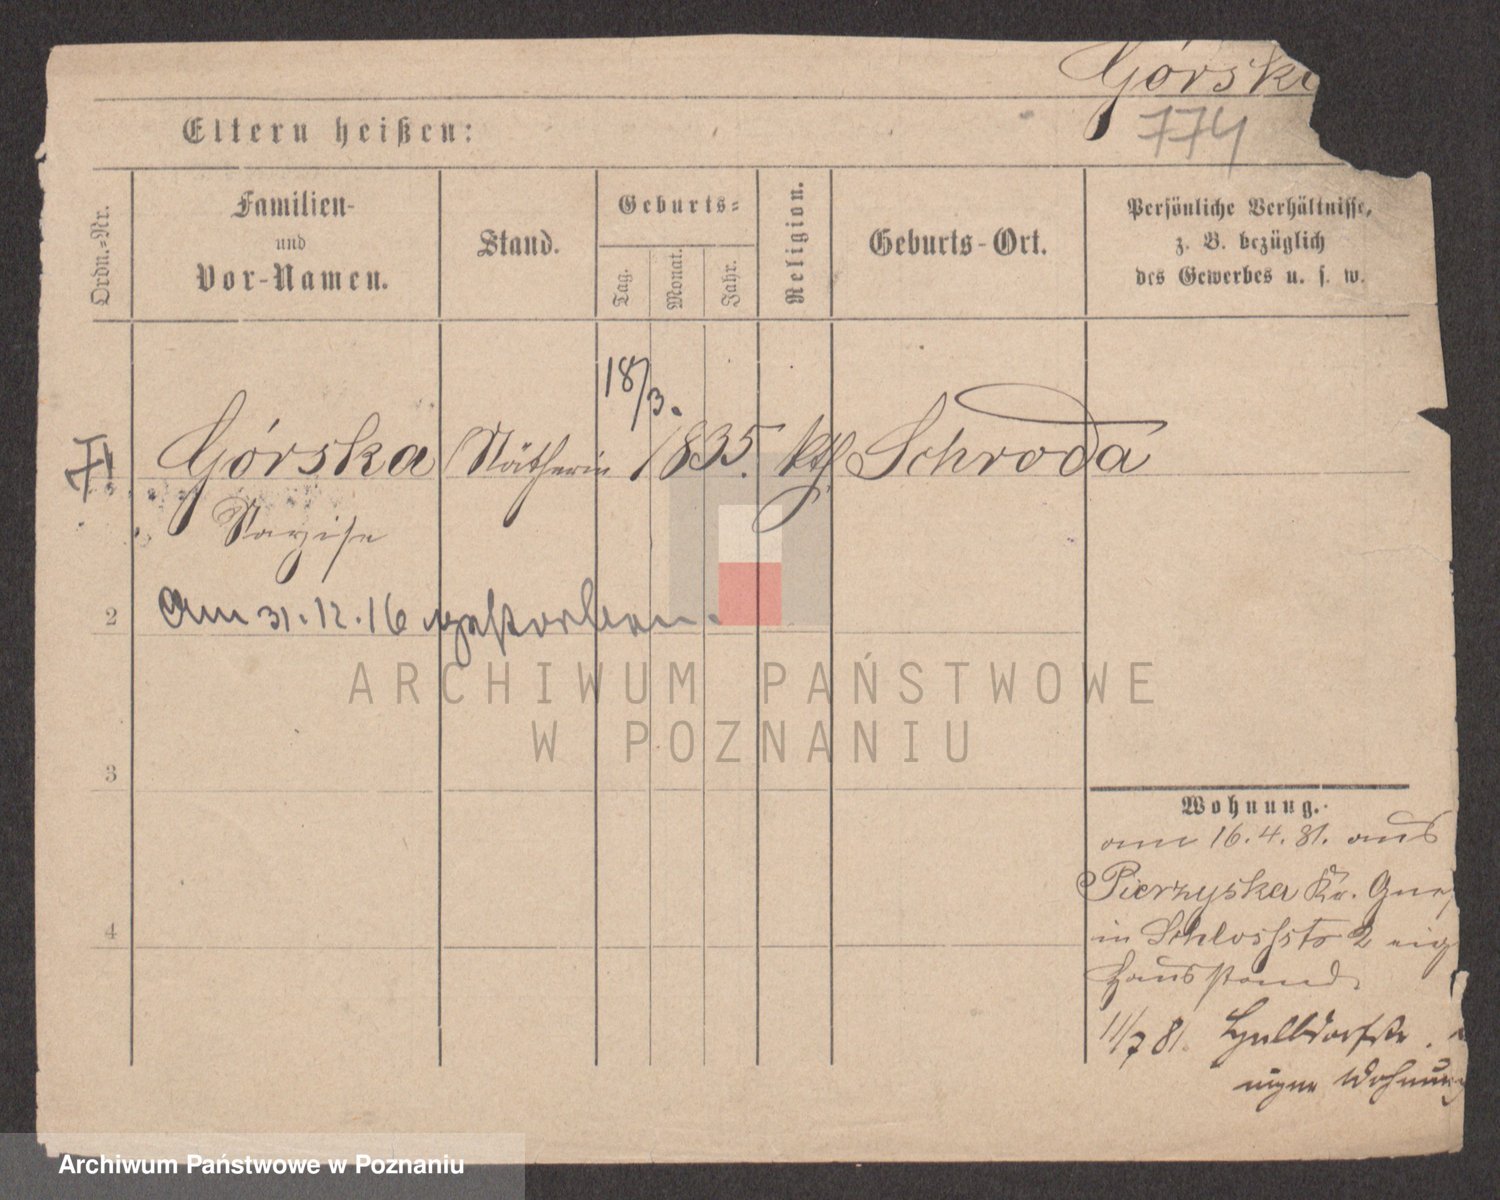 Górska
774
Eltern heißen:
Ordn.=Nr.
Familien-
und
Vor-Namen.
Stand.
Geburts=
Tag.
Monat.
Jahr.
Religion.
Geburts-Ort.
Persönliche Verhältnisse,
z. B. bezüglich
des Gewerbes u. s. w.
18/3.
Górska Nätherin 1835. kth Schroda
Narzise
2
Am 31.12.16 gestorben.
3
4
Wohnung.
am 16.4.81. aus
Pierzyska Kr. Gnes
in Schlossstr 2 eig
Hausstand.
11/7 81.
eigne Wohnung
ARCHIWUM PAŃSTWOWE
W POZNANIU
Archiwum Państwowe w Poznaniu